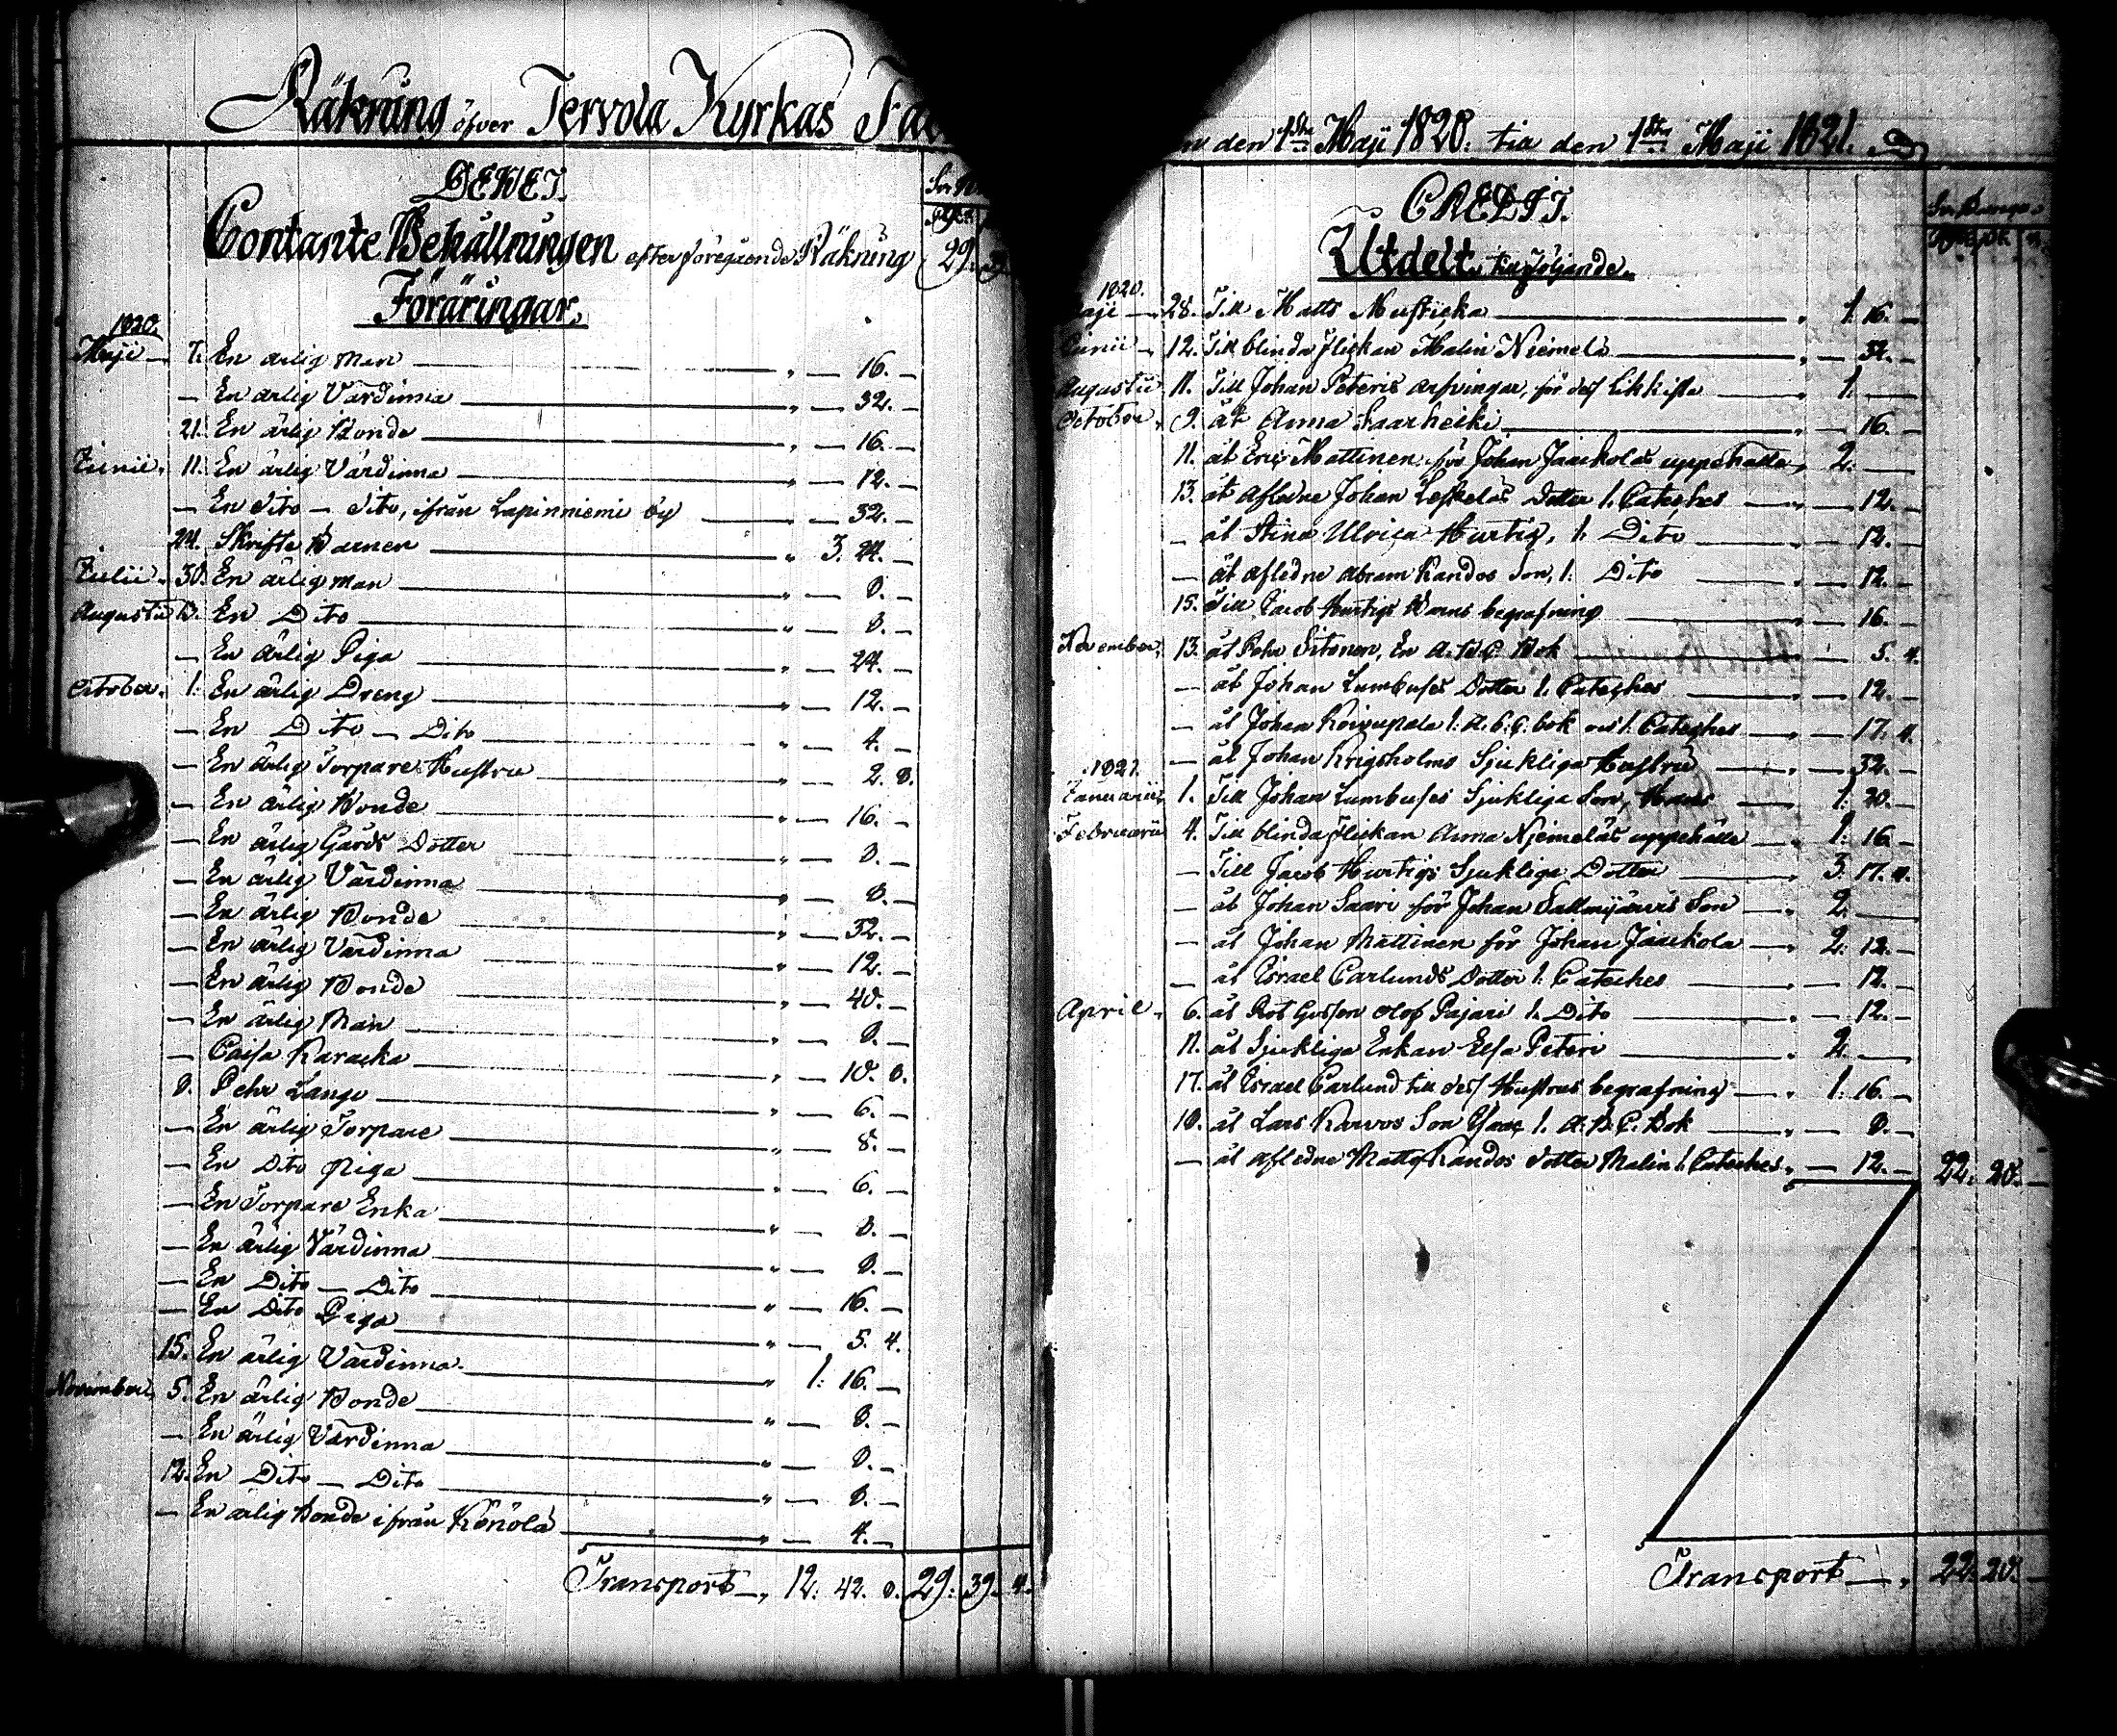 Räkning öfver Tervola Kyrkas
DEBET.
Contante Behållningen efter föregående Räkning 29.
Föräringar.
1820.
Maji — 7. En ärlig Man „ — 16. —
— En ärlig Värdinna „ — 32. —
21. En ärlig Bonde „ — 16. —
Junii. 11. En ärlig Värdinna „ — 12. —
— En dito — dito, ifrån Lapinniemi by „ — 32. —
24. Skrifte Barnen „ 3. 24. —
Julii. 30. En ärlig man „ — 8. —
Augustii En Dito „ — 8. —
— En ärlig Piga „ — 24. —
October. 1. En ärlig Dreng „ — 12. —
— En Dito — Dito „ — 4. —
— En ärlig Torpare Hustru „ — 2. 8.
— En ärlig Bonde „ — 16. —
— En ärlig Gårds Dotter „ — 8. —
— En ärlig Värdinna „ — 8. —
— En ärlig Bonde „ — 32. —
— En ärlig Värdinna „ — 12. —
— En ärlig Bonde „ — 40. —
— En ärlig Man „ — 8. —
— Caisa Karacka „ — 10. 8.
8. Pehr Lango „ — 6. —
— En ärlig Torpare „ — 8. —
— En Dito Piga „ — 6. —
— En Torpare Enka „ — 8. —
— En ärlig Värdinna „ — 8. —
— En Dito — Dito „ — 16. —
— En Dito Piga „ — 5. 4.
15. En ärlig Värdinna „ 1: 16. —
November. 5. En ärlig Bonde „ — 8. —
— En ärlig Värdinna „ — 8. —
12. En Dito — Dito „ — 8. —
— En ärlig Bonde ifrån Könölä „ — 4. —
Transport „ 12: 42. 8. 29: 39. 4.
den 1sta Maji 1820. till den 1sta Maji 1821.
CREDIT.
Utdelt till följande.
1820.
Maji — 28. Till Matts Musticka „ 1: 16. —
Junii — 12. Till blinda flickan Malin Niemelä „ — 32. —
Augustii 11. Till Johan Peteris arfvingar, för dess Likkista 1: —
October. 9. åt Anna Saarheiki „ — 16. —
11. åt Eric Mattinen för Johan Jaakolas uppehälle „ 2: —
13. åt Afledne Johan Leskeläs Dotter 1. Cateches „ — 12. —
— åt Stina Ulrica Hurtig, 1. Dito „ — 12. —
— åt afledne Abram Kandos Son, 1. Dito „ — 12. —
15. Till Jacob Hurtigs Barns begrafning „ — 16. —
November, 13. åt Pehr Sitonen, En A.B.C. Bok — 5. 4.
— åt Johan Lumbuses Dotter 1. Cateches „ — 12. —
— åt Johan Koivupala 1. A.B.C. bok och 1. Cateches „ — 17. 4.
— åt Johan Krigsholms Sjukliga Hustru „ — 32. —
1821.
Januarii, 1. Till Johan Lumbuses Sjukliga Son, „ 1: 20. —
Februarii 4. Till blinda flickan Anna Niemeläs uppehälle „ 1: 16 —
— Till Jacob Hurtigs Sjukliga Dotter „ 3. 17. 4.
— åt Johan Saari för Johan Sallmijärvis Son „ 2. —
— åt Johan Mattinen för Johan Jaakola „ 2: 12. —
— åt Israel Carlunds Dotter 1. Cateches „ — 12. —
April. 6. åt Rot Gossen Olof Pajari 1. Dito „ — 12. —
11. åt Sjukliga Enkan Elsa Peteri „ 2. —
17. åt Israel Carlund till dess Hustrus begrafning „ 1: 16. —
18. åt Lars Karvos Son 1. A.B.C. Bok „ — 8. —
— åt afledne Matts Kandos dotter Malin 1. Cateches. „ — 12. — 22. 20. —
Transport „ 22. 20. —